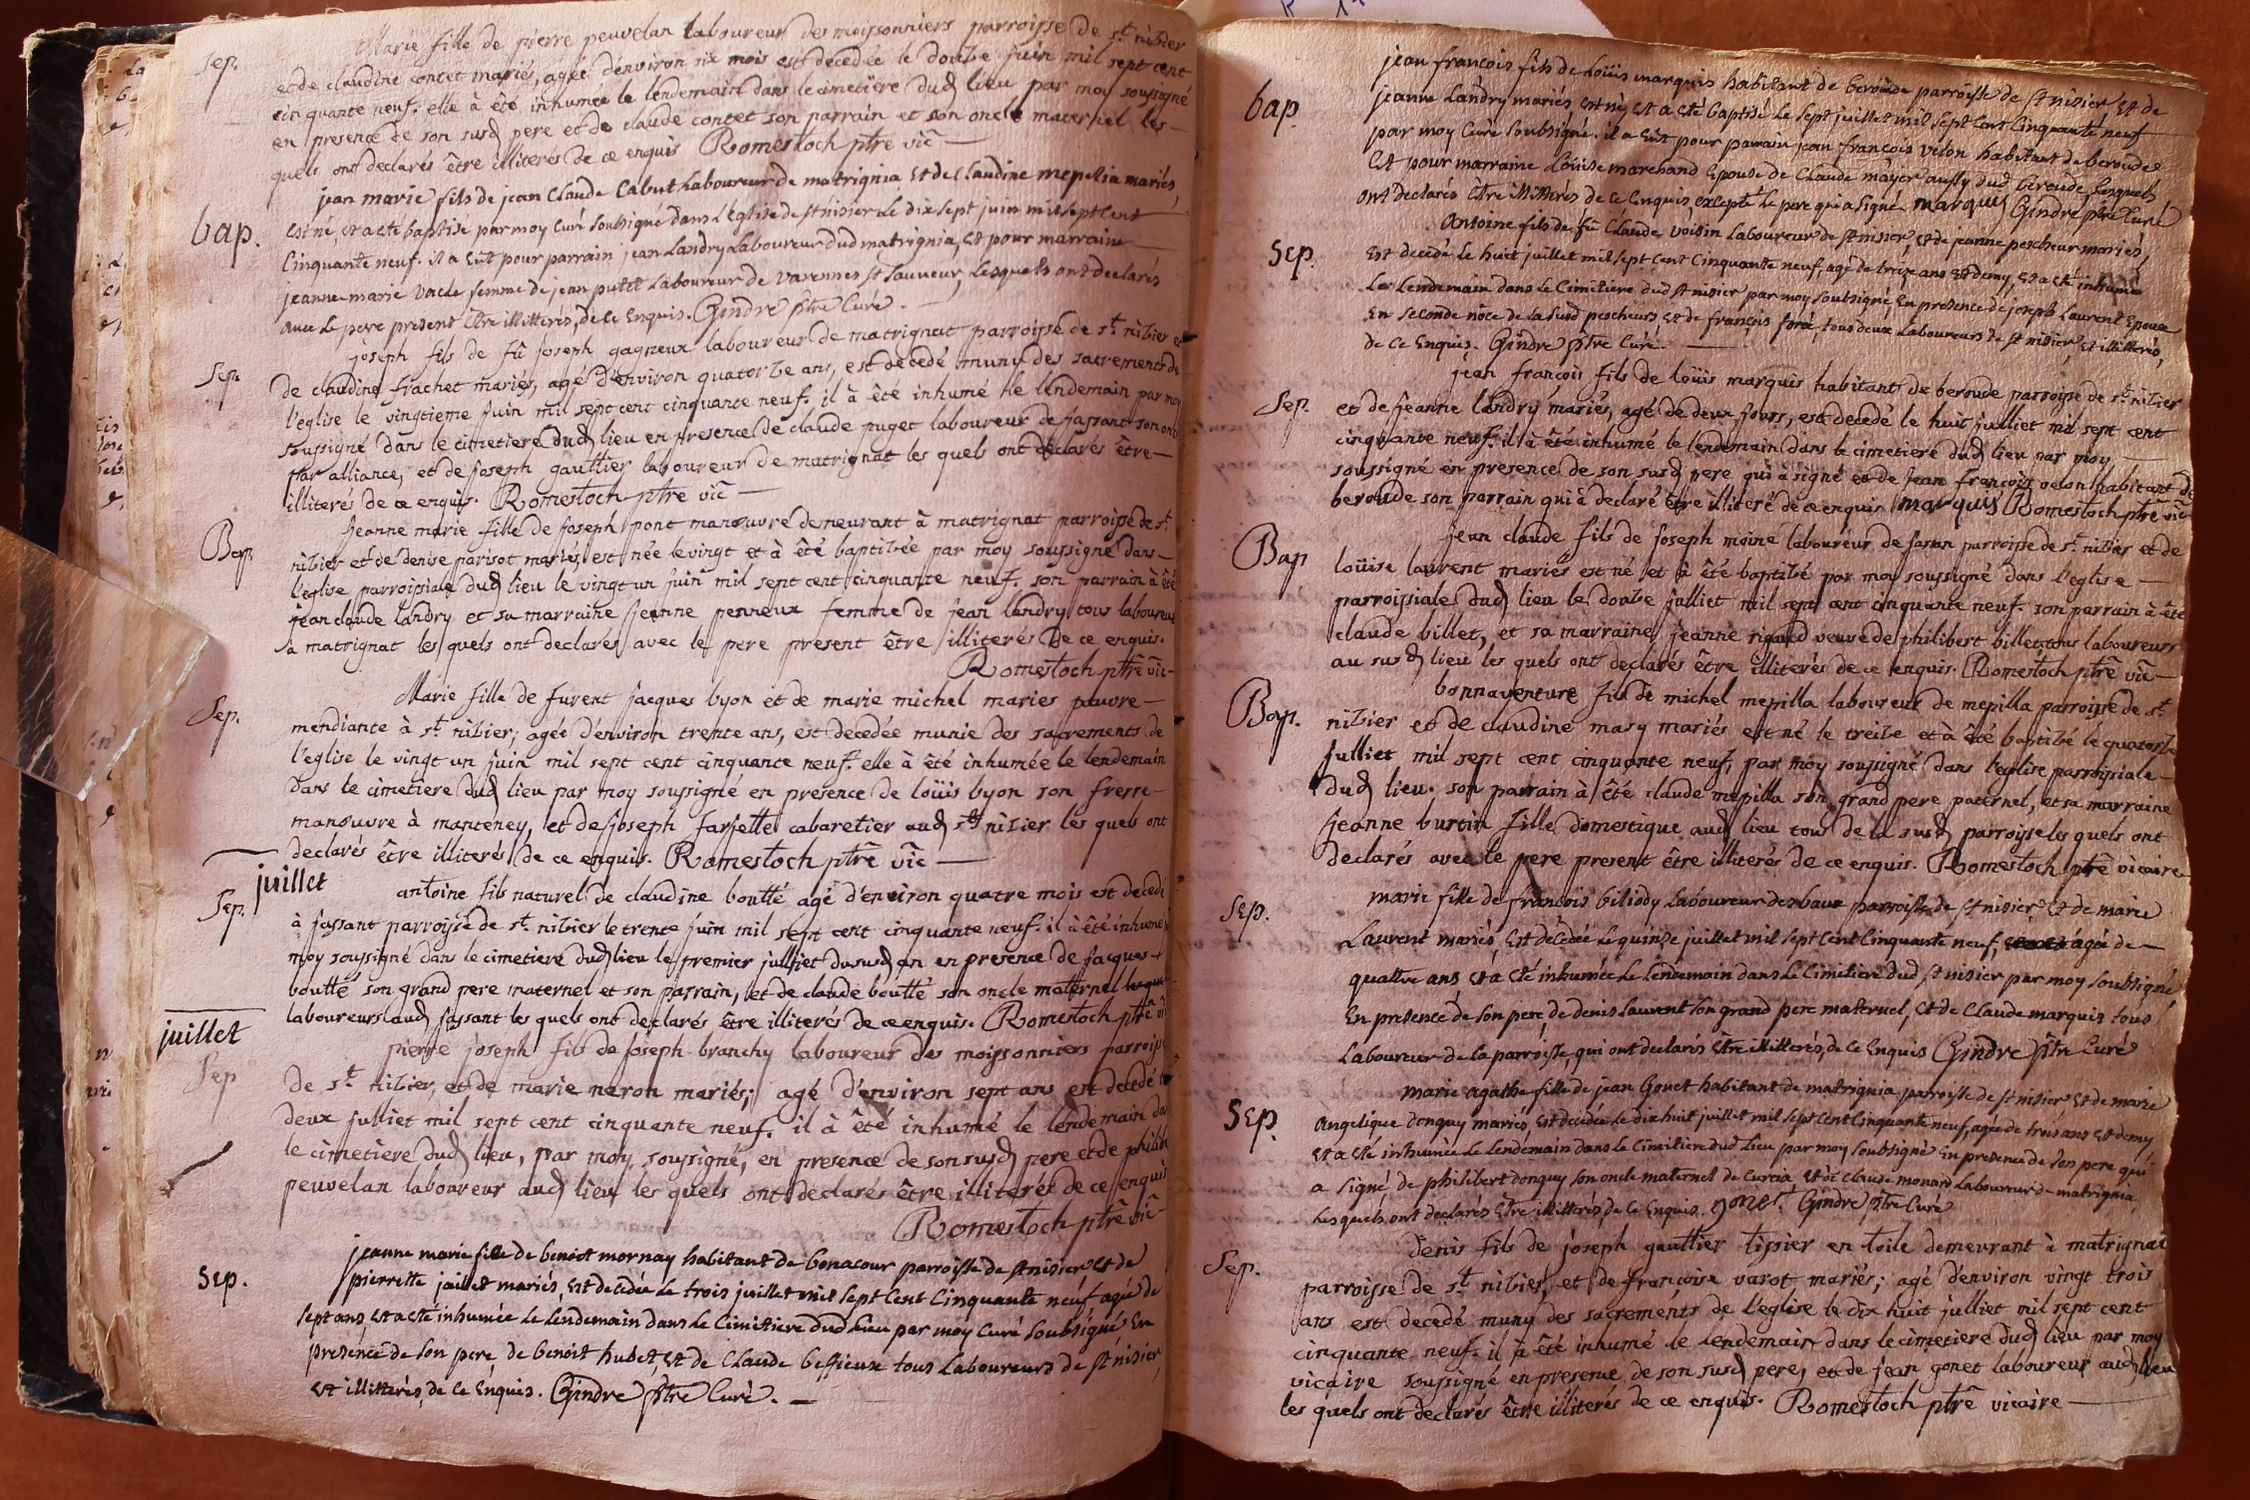 Marie fille de pierre peuvelan laboureur des moissonniers parroisse de st. nibier
Sep.
et de claudine contet mariés, agée d'environ six mois est decedée le doube juin mil sept cent
cinquante neuf. elle à été inhumée le lendemain dans le cimetiere dud lieu par moy soussigné
en presence de son susd pere et de claude contet son parrain et son oncle maternel les
quels ont declarés être illiterés de ce enquis Romestoch ptre vic
jean marie fils de jean Claude Cabut Laboureur de matrignia et de Claudine mepillia mariés,
bap.
est né, et a eté baptisé par moy curé soubsigné dans L'eglise de st nisier Le dix sept juin mil sept Cent
Cinquante neuf. il a eüt pour parrain jean Landry Laboureur dud matrignia, et pour marraine
jeanne marie vacle femme de jean putet Laboureur de varennes st sauveur, Lesquels ont declarés
avec Le pere present être illitterés, de ce Enquis. Gindre ptre Curé.
joseph fils de fû joseph gagneux laboureur de matrignat parroisse de st. nibier et
Sep.
de claudine hachet mariés, agé d'environ quatorbe ans, est decedé muny des sacrements de
l'eglise le vingtieme juin mil sept cent cinquante neuf. il à été inhumé le lendemain par moy
soussigné dans le cimetiere dud lieu en presence de claude puget laboureur de fassant son oncle
par alliance, et de joseph gaultier laboureur de matrignat les quels ont declarés être
illiterés de ce enquis. Romestoch ptre vic
jeanne marie fille de joseph pont manœuvre demeurant à matrignat parroisse de st.
Bap.
nibier et de denise parisot mariés, est née le vingt et à été baptibée par moy soussigné dans
l'eglise parroissiale dud lieu le vingt un juin mil sept cent cinquante neuf. son parrain à été
jean claude landry et sa marraine jeanne penneux femme de jean landry tous laboureurs
à matrignat les quels ont declarés avec le pere present être illiterés de ce enquis.
Romestoch ptre vic
Marie fille de furent jacques byon et de marie michel maries pauvre
Sep.
mendiante à st. nibier, agée d'environ trente ans, est decedée munie des sacrements de
l'eglise le vingt un juin mil sept cent cinquante neuf. elle à été inhumée le lendemain
dans le cimetiere dud lieu par moy soussigné en presence de loüis byon son frere
manœuvre à manteney, et de joseph farjette cabaretier aud st nibier les quels ont
declarés être illiterés de ce enquis. Romestoch ptre vic
juillet
antoine fils naturel de claudine boutté agé d'environ quatre mois est decedé
Sep.
à fassant parroisse de st. nibier le trente juin mil sept cent cinquante neuf. il à été inhumé
moy soussigné dans le cimetiere dud lieu le premier julliet du susd an en presence de jacques
boutté son grand pere maternel et son parrain, et de claude boutté son oncle maternel
laboureurs aud fassant les quels ont declarés être illiterés de ce enquis. Romestoch ptre
juillet
pierre joseph fils de joseph branchy laboureur des moissonniers parroisse
Sep
de st. nibier, et de marie naron mariés; agé d'environ sept ans est decedé
deux julliet mil sept cent cinquante neuf. il à été inhumé le lendemain
le cimetiere dud lieu, par moy soussigné, en presence de son susd pere et de philib
peuvelan laboureur aud lieu les quels ont declarés être illiterés de ce enquis
Romestoch ptre vic
jeanne marie fille de benoit mornay habitant de bonacour parroisse de st nisier et de
Sep.
pierrette jaillet mariés, est decedée Le trois juillet mil sept Cent Cinquante neuf, agée de
sept ans, et a eté inhumée Le Lendemain dans Le Cimitiere dud Lieu par moy Curé Soubsigné En
presence de son pere, de benoit hubet, et de Claude bessieux tous Laboureurs de st nisier,
et illitterés, de ce Enquis. Gindre ptre Curé.
jean françois fils de Loüis marquis habitant de beroude parroisse de st nisier et de
bap.
jeanne Landry mariés, est né, et a eté baptisé Le sept juillet mil sept Cent Cinquante neuf
par moy Curé Soubsigné. il a eüt pour parrain jean françois velon habitant de beroude
et pour marraine Loüise marchand Epouse de Claude mayer aussy dud beroude, Lesquels
ont declarés être illitterés de ce Enquis, excepté Le pere qui a signé. marquis Gindre ptre Curé
antoine fils de fû Claude voisin Laboureur de st nisier et de jeanne pescheur mariés,
Sep.
est decedé Le huit juillet mil sept Cent Cinquante neuf, agé de treize ans et demy, et a eté inhumé
Le Lendemain dans Le Cimitiere dud st nisier par moy soubsigné, En presence de joseph Laurent Epoux
En seconde nôce de la susd pescheurs et de françois forá, tous deux Laboureurs de st nisier, et illitterés,
de ce Enquis. Gindre ptre Curé.
jean françois fils de loüis marquis habitant de beroude parroisse de st. nibier
Sep.
et de jeanne landry mariés, agé de deux jours, est decedé le huit julliet mil sept cent
cinquante neuf. il à été inhumé le lendemain dans le cimetiere dud lieu par moy
soussigné en presence de son susd pere qui à signé et de jean françois velon habitant de
beroude son parrain qui à declaré être illiteré de ce enquis marquis Romestoch ptre vic
jean claude fils de joseph moine laboureur de fasan parroisse de st. nibier et de
Bap
loüise laurent mariés est né et à été baptibé par moy soussigné dans l'eglise
parroissiale dud lieu le doube julliet mil sept cent cinquante neuf. son parrain à été
claude billet, et sa marraine jeanne rigaud veuve de philibert billet, tous laboureurs
au susd lieu les quels ont declarés être illiterés de ce enquis. Romestoch ptre vic
bonnaventure fils de michel mepilla laboureur de mepilla parroisse de st.
Bap.
nibier et de claudine masy mariés est né le treibe et à été baptibé le quatorbe
julliet mil sept cent cinquante neuf, par moy soussigné dans l'eglise parroissiale
dud lieu. son parrain à été claude mepilla son grand pere paternel, et sa marraine
jeanne burtin fille domestique aud lieu tous de la susd parroisse les quels ont
declarés avec le pere present être illiterés de ce enquis. Romestoch ptre vicaire
marie fille de françois biliody Laboureur des baux parroisse de st nisier et de marie
Sep.
Laurent mariés est decedée Le quinze juillet mil sept Cent Cinquante neuf, agée de
quattre ans et a eté inhumée Le Lendemain dans Le Cimitiere dud st nisier par moy soubsigné
En presence de son pere, de denis Laurent son grand pere maternel, et de Claude marquis tous
Laboureurs de la parroisse, qui ont declarés être illitterés, de ce Enquis Gindre ptre Curé
marie agathe fille de jean Gonet habitant de matrignia parroisse de st nisier et de marie
Sep.
angelique donguy mariés, est decedée Le dix huit juillet mil sept Cent Cinquante neuf, agée de trois ans et demy
et a eté inhumée Le Lendemain dans Le Cimitiere dud Lieu par moy soubsigné En presence de son pere qui
a signé, de philibert donguy son oncle maternel de Curcia et de Claude monard Laboureur de matrignia,
Lesquels ont declarés être illitterés, de ce Enquis. gonet. Gindre ptre Curé
denis fils de joseph gaultier tissier en toile demeurant à matrignat
Sep.
parroisse de st. nibier, et de françoise varot mariés; agé d'environ vingt trois
ans est decedé muny des sacrements de l'eglise le dix huit julliet mil sept cent
cinquante neuf. il à été inhumé le lendemain dans le cimetiere dud lieu par moy
vicaire soussigné en presence de son susd pere, et de jean gonet laboureur aud lieu
les quels ont declarés être illiterés de ce enquis. Romestoch ptre vicaire